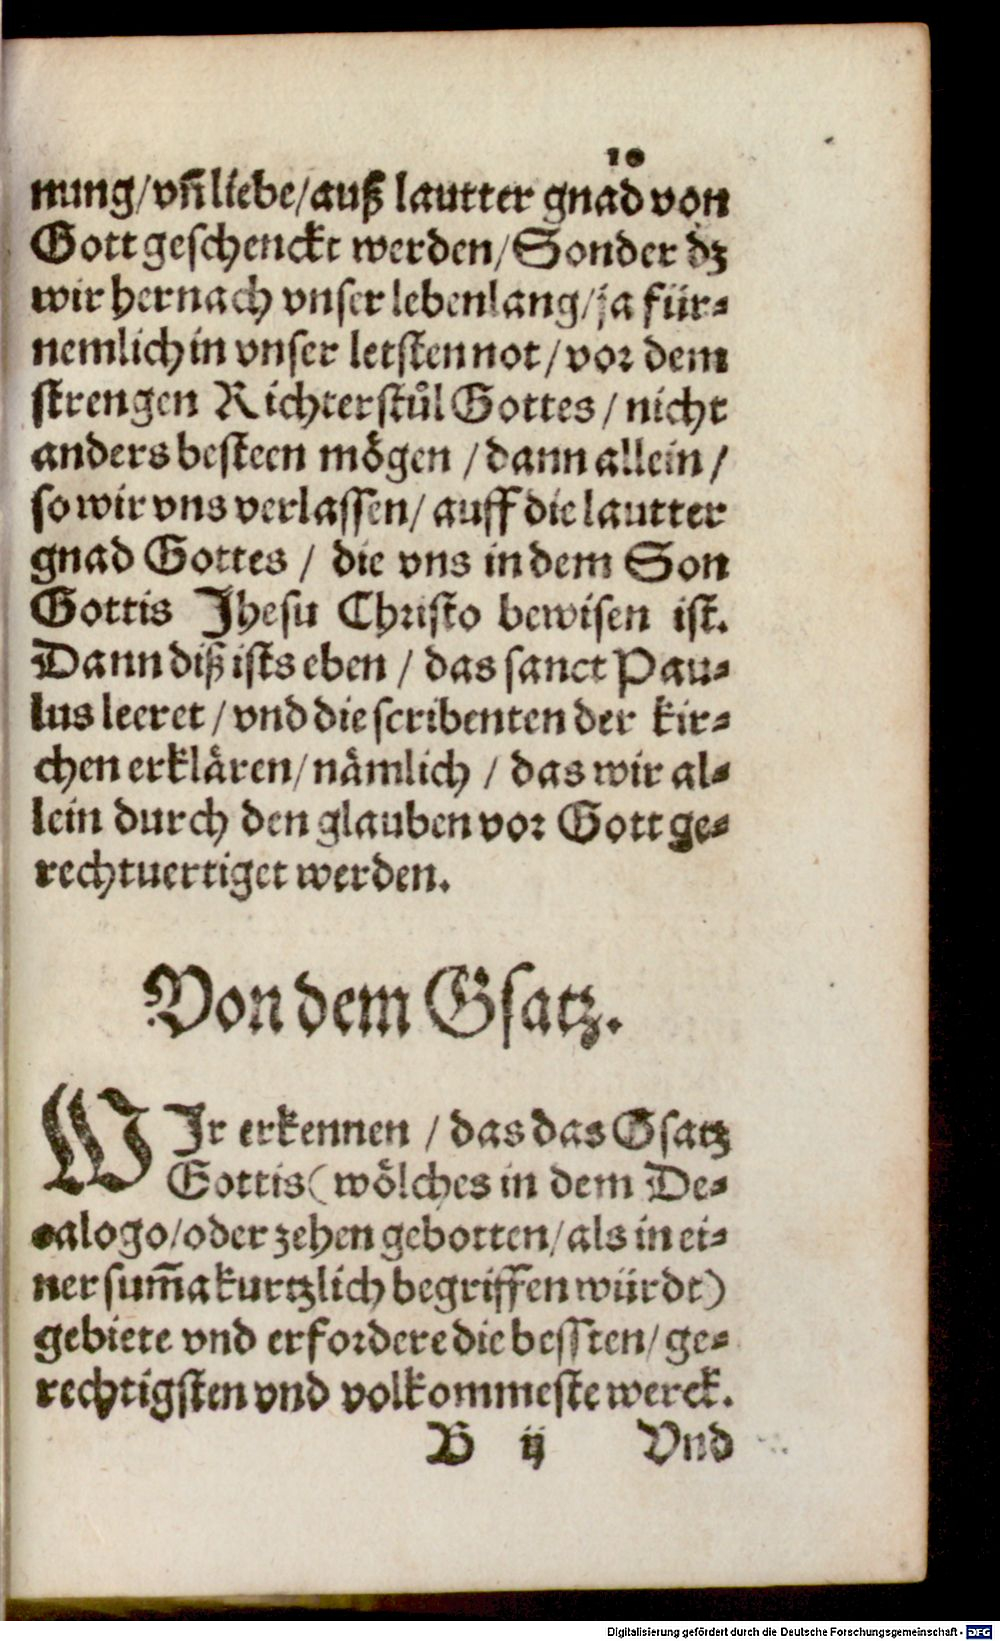 10
nung/ vñ liebe/ auß lautter gnad von
Gott geschenckt werden/ Sonder dz
wir hernach vnser lebenlang/ ja für-
nemlich in vnser letsten not/ vor dem
strengen Richterstůl Gottes/ nicht
anders besteen mögen/ dann allein/
so wir vns verlassen/ auff die lautter
gnad Gottes/ die vns in dem Son
Gottis Jhesu Christo bewisen ist.
Dann diß ists eben/ das sanct Pau-
lus leeret/ vnd die scribenten der kir-
chen erklären/ nämlich/ das wir al-
lein durch den glauben vor Gott ge-
rechtuertiget werden.
Von dem Gsatz.
WJr erkennen/ das das Gsatz
Gottis (wölches in dem De-
calogo/ oder zehen gebotten/ als in ei-
ner sum̃a kurtzlich begriffen würdt)
gebiete vnd erfordere die bessten/ ge-
rechtigsten vnd volkommeste werck.
B ij Vnd
Digitalisierung gefördert durch die Deutsche Forschungsgemeinschaft - DFG